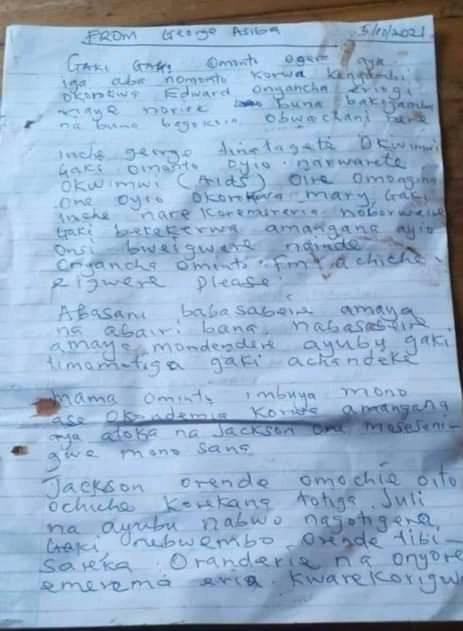 FROM George Asiba 5/10/2021
GAKI GAKI Omonto oger aya
iga aba nomonto korwa
Okorokwa Edward onyancha eringi
maye norire buna
na buna begokoia Obwachani bane
Inche george tinetagete Okwimwi
Gaki Omonto oyio narwarete
Okwimwi (Aids) Oire Omongina
One oyio Okorokwa mary Gaki
Inche nare Koremereria
Gaki betekerwa amangana ayio
Onsi bweigwere nginde
Onyancha Ominto Fm achiche
eigwere please
Abasani babasabeire amaya
na abairi bana nabasastire
amaya mondendere ayubu gaki
timomotiga gaki achandeke
mama Ominto imbuya mono
ase Okondemia Korwa amangana
aya atoka na Jackson ona moseseni-
gwe mono sana
Jackson orende omochie oito
ochiche Korekana totiga Juli
na ayubu nabwo nagotigera
Gaki nebwembo Orende tibi-
sareka Oranderie na onyore
emerema eria Kwarekorigwa